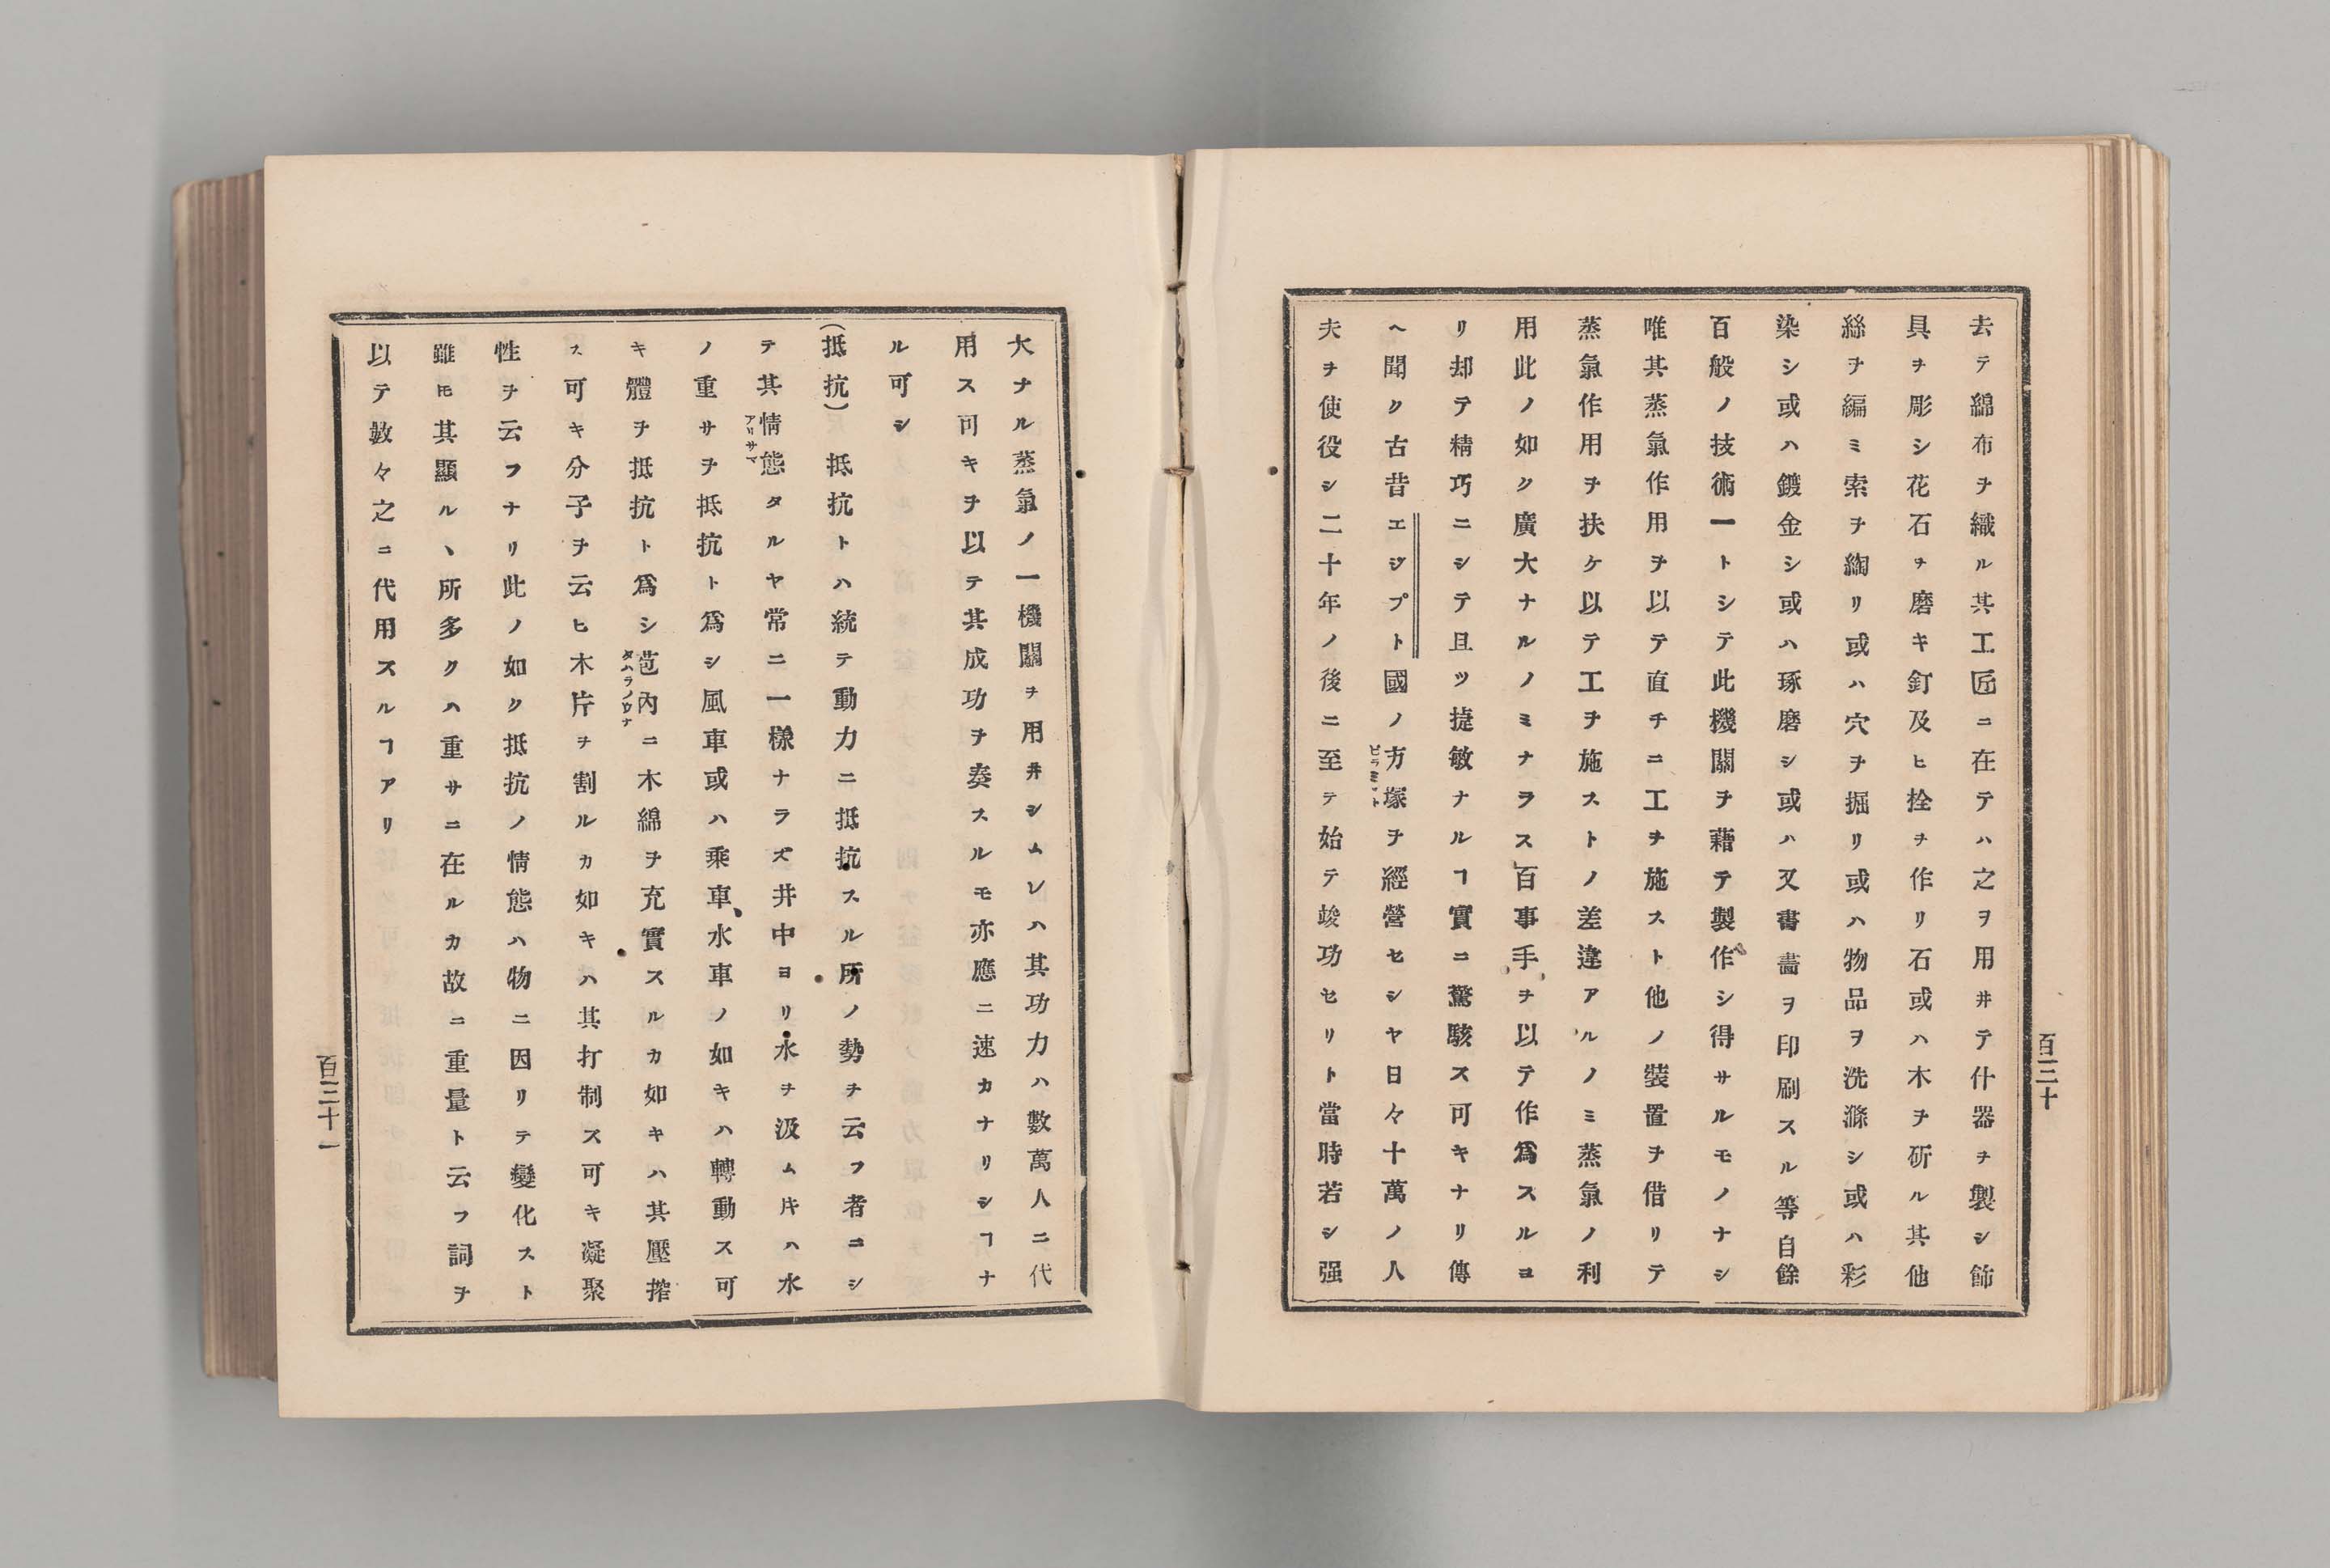 去テ綿布ヲ織ル其工匠ニ在テハ之ヲ用井テ什器ヲ製シ飾
具ヲ彫シ花石ヲ磨キ釘及ヒ拴ヲ作リ石或ハ木ヲ斫ル其他
絲ヲ編ミ索ヲ綯リ或ハ穴ヲ掘リ或ハ物品ヲ洗滌シ或ハ彩
染シ或ハ鍍金シ或ハ琢磨シ或ハ又書畵ヲ印刷スル等自餘
百般ノ技術一トシテ此機關ヲ藉テ製作シ得サルモノナシ
唯其蒸氣作用ヲ以テ直チニ工ヲ施スト他ノ裝置ヲ借リテ
蒸氣作用ヲ扶ケ以テ工ヲ施ストノ差違アルノミ蒸氣ノ利
用此ノ如ク廣大ナルノミナラス百事手ヲ以テ作爲スルヨ
リ却テ精巧ニシテ且ツ捷敏ナルヿ實ニ驚駭ス可キナリ傳
ヘ聞ク古昔エジプト國ノ方塚ヲ經營セシヤ日々十萬ノ人
ピラミット
夫ヲ使役シ二十年ノ後ニ至テ始テ竣功セリト當時若シ强
百三十
大ナル蒸氣ノ一機關ヲ用井シムレハ其功力ハ數萬人ニ代
用ス可キヲ以テ其成功ヲ奏スルモ亦應ニ速カナリシヿナ
ル可シ
(抵抗) 抵抗トハ統テ動力ニ抵抗スル所ノ勢ヲ云フ者ニシ
テ其情態タルヤ常ニ一樣ナラズ井中ヨリ水ヲ汲ムㇳキハ水
アリサマ
ノ重サヲ抵抗ト爲シ風車或ハ乘車水車ノ如キハ轉動ス可
キ體ヲ抵抗ト爲シ苞內ニ木綿ヲ充實スルカ如キハ其壓搾
タハラノウナ
ス可キ分子ヲ云ヒ木片ヲ割ルカ如キハ其打制ス可キ凝聚
性ヲ云フナリ此ノ如ク抵抗ノ情態ハ物ニ因リテ變化スト
雖ㇳモ其顯ルヽ所多クハ重サニ在ルカ故ニ重量ト云フ詞ヲ
以テ數々之ニ代用スルヿアリ
百三十一